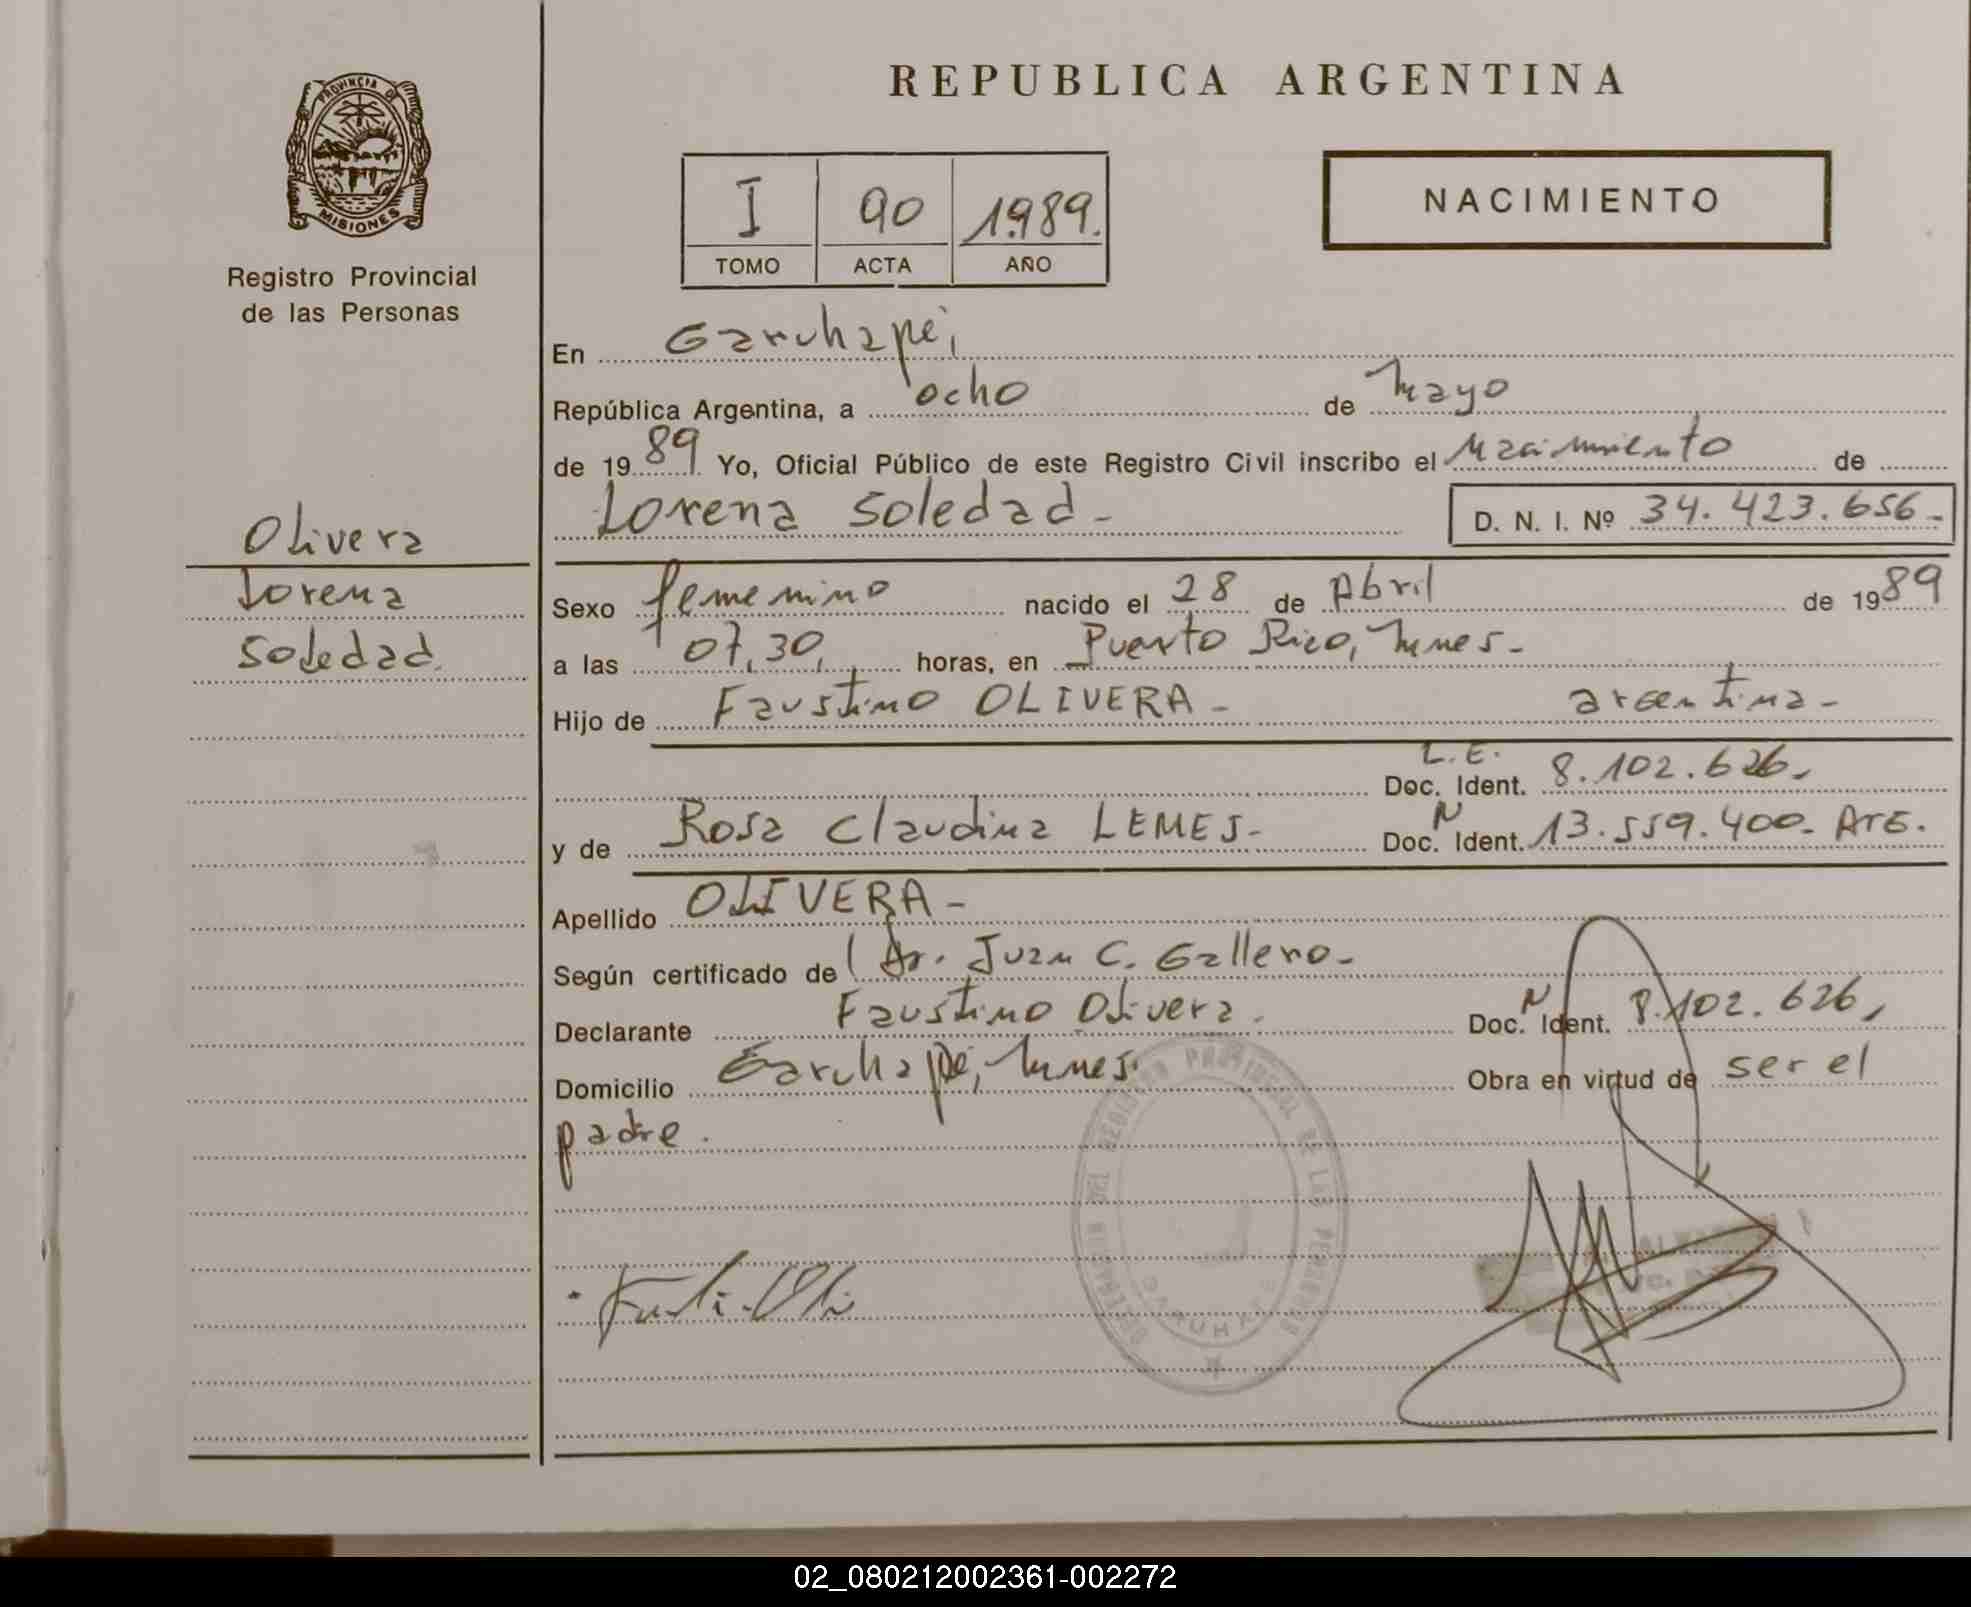 PROVINCIA DE
MISIONES
Registro Provincial
de las Personas
Olivera
Lorena
Soledad.
REPUBLICA ARGENTINA
I 90 1989.
TOMO ACTA AÑO
NACIMIENTO
En Garuhapé,
República Argentina, a ocho de Mayo
de 1989 Yo, Oficial Público de este Registro Civil inscribo el Nacimiento de
Lorena Soledad - D. N. I. Nº 34.423.656-
Sexo femenino nacido el 28 de Abril de 1989
a las 07,30, horas, en Puerto Rico, Mnes-
Hijo de Faustino OLIVERA - argentina-
L.E.
Doc. Ident. 8.102.626,
y de Rosa Claudina LEMES- Doc. N Ident. 13.559.400- ARG.
Apellido OLIVERA -
Según certificado de Dr. Juan C. Gallero-
Declarante Faustino Olivera. Doc. N Ident. 8.102.626,
Domicilio Garuhapé, Mnes. Obra en virtud de ser el
padre.
DEL REGISTRO PROVINCIAL DE LAS PERSONAS
GARUHAPE
02_080212002361-002272